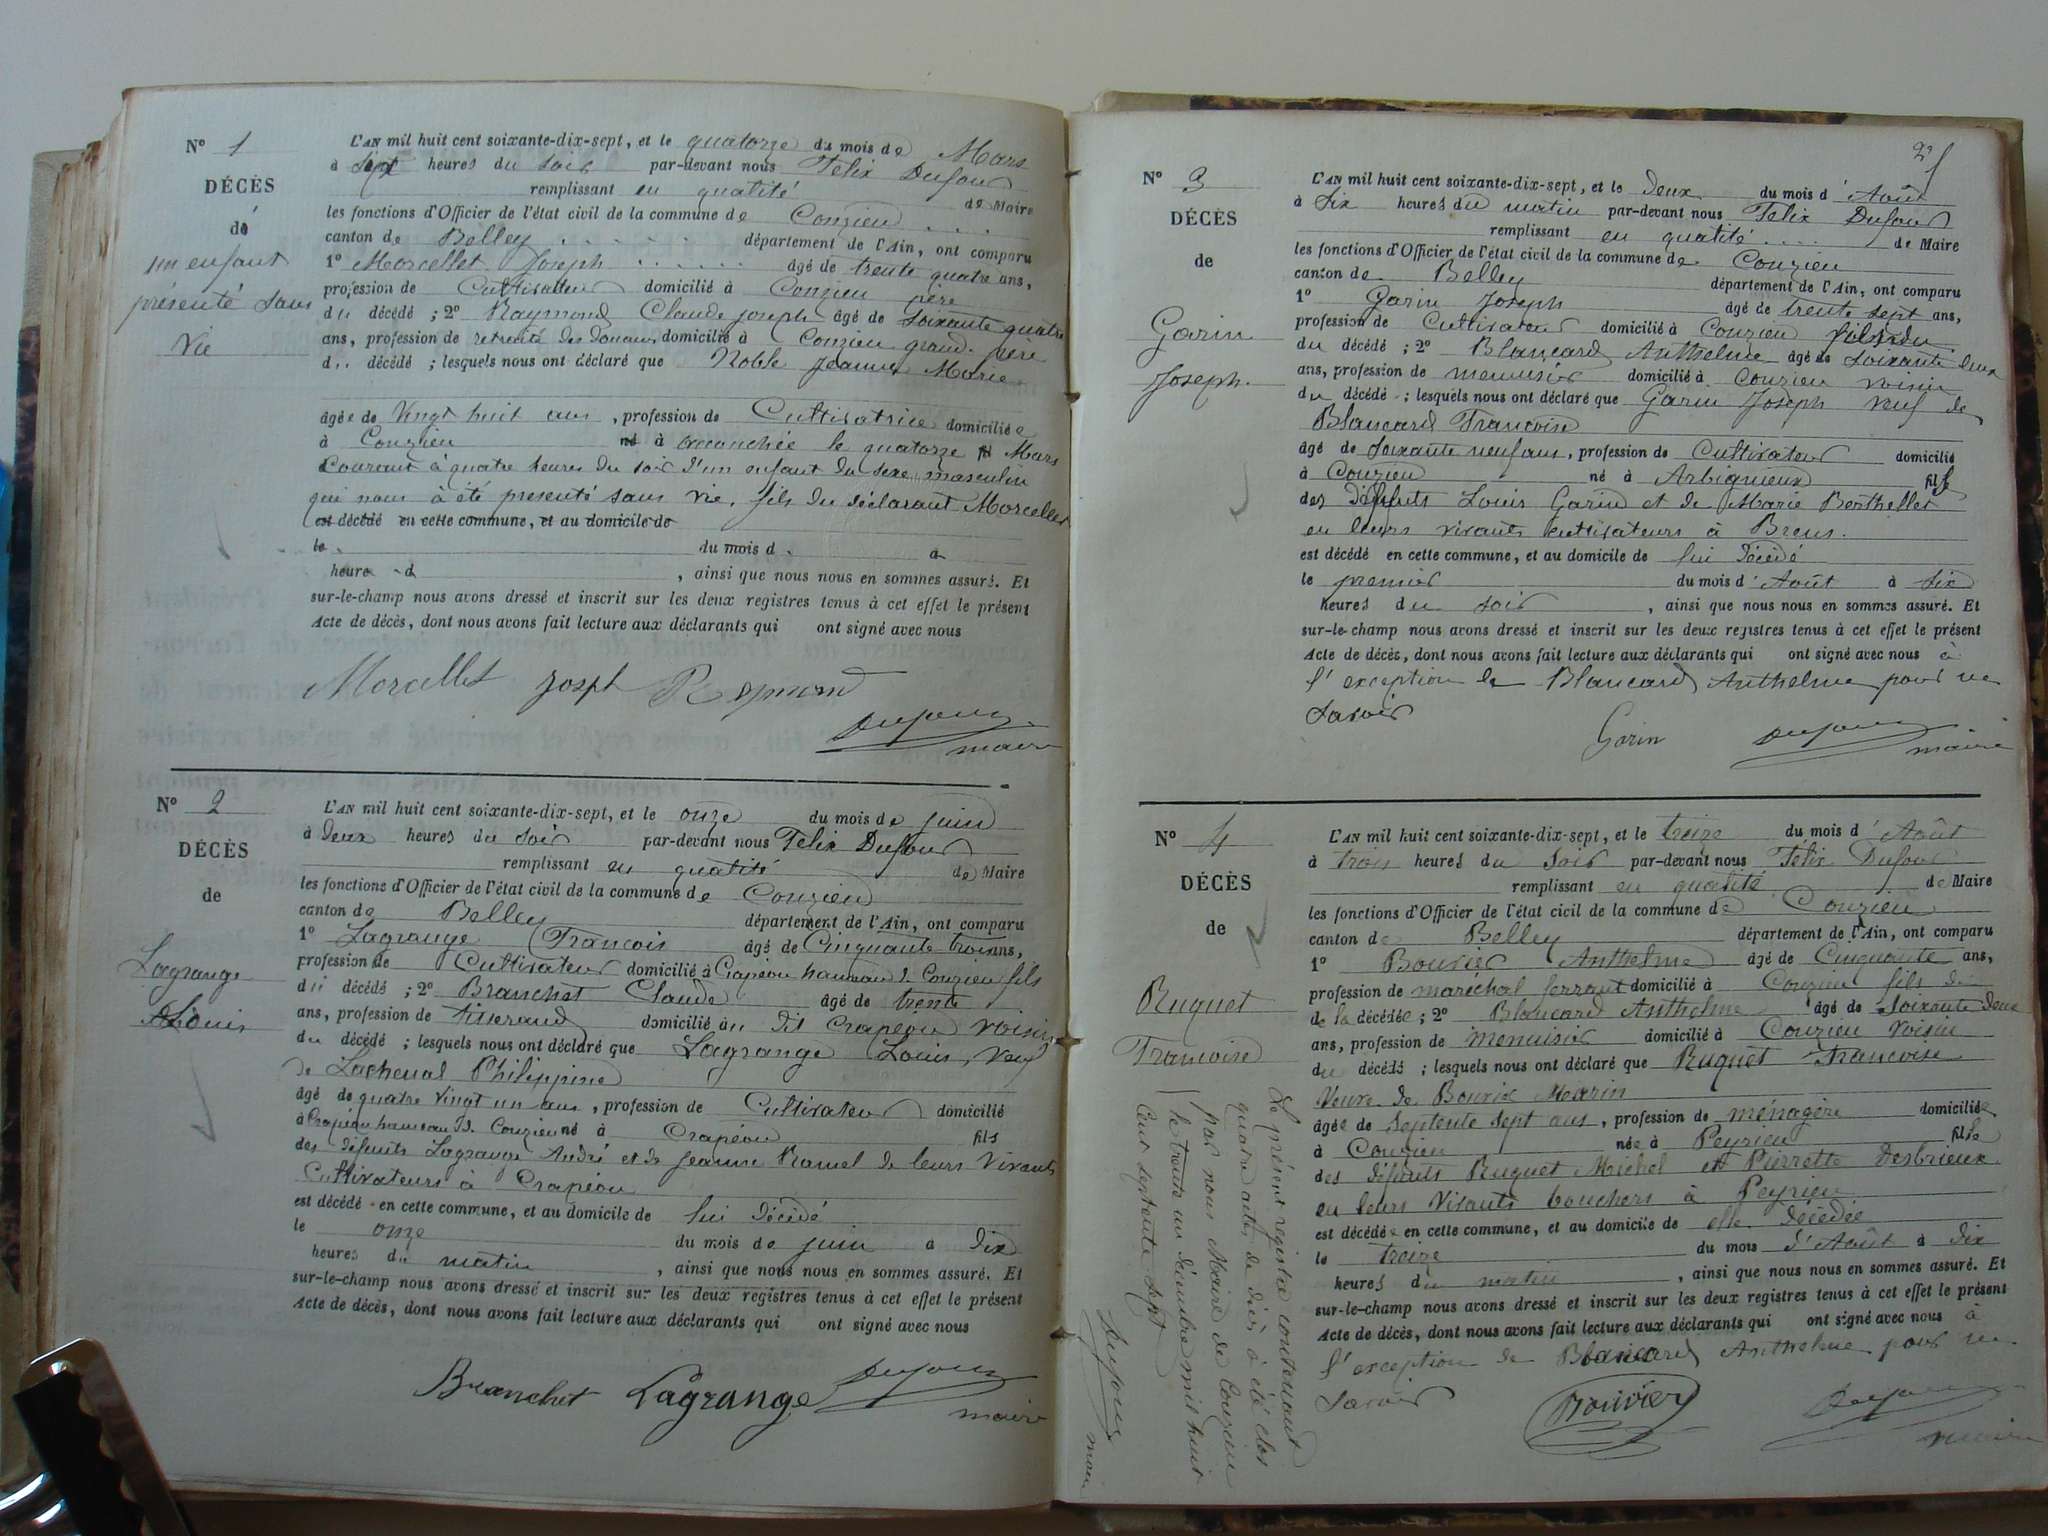 Nº 1
DÉCÈS
de
un enfant
présenté sans
vie
L'AN mil huit cent soixante-dix-sept, et le quatorze du mois de Mars
à sept heures du soir par-devant nous Felix Dufour
remplissant en qualité de Maire
les fonctions d'Officier de l'état civil de la commune de Conzieu
canton de Belley département de l'Ain, ont comparu
1º Morcellet Joseph âgé de trente quatre ans,
profession de Cultivateur domicilié à Conzieu père
du décédé ; 2º Raymond Claude joseph âgé de soixante quatre
ans, profession de retraité des Douanes domicilié à Conzieu grand-père
d.. décédé ; lesquels nous ont déclaré que Noble Jeanne Marie
âgée de Vingt huit ans, profession de Cultivatrice domiciliée
à Conzieu né à accouchée le quatorze Mars
Courant à quatre heures du soir d'un enfant du sexe masculin
qui nous à été présenté sans vie, fils du déclarant Morcellet
est décédé en cette commune, et au domicile de
le du mois d à
heure d , ainsi que nous nous en sommes assuré. Et
sur-le-champ nous avons dressé et inscrit sur les deux registres tenus à cet effet le présent
Acte de décès, dont nous avons fait lecture aux déclarants qui ont signé avec nous
Morcellet Joseph Raymond
Dufour
maire
Nº 2
DÉCÈS
de
Lagrange
Louis
L'AN mil huit cent soixante-dix-sept, et le onze du mois de juin
à deux heures du soir par-devant nous Felix Dufour
remplissant en qualité de Maire
les fonctions d'Officier de l'état civil de la commune de Conzieu
canton de Belley département de l'Ain, ont comparu
1º Lagrange François âgé de Cinquante trois ans,
profession de Cultivateur domicilié à Crapéou hameau d. Conzieu fils
du décédé ; 2º Branchet Claude âgé de trente
ans, profession de tisserand domicilié au dit Crapéou voisin
du décédé ; lesquels nous ont déclaré que Lagrange Louis, veuf
de Lacheval Philippine
âgé de quatre vingt un ans, profession de Cultivateur domicilié
à Crapéou hameau D. Conzieu né à Crapéou fils
des défunts Lagrange André et de Jeanne Ramel de leurs vivants
Cultivateurs à Crapéou
est décédé en cette commune, et au domicile de lui décédé
le onze du mois de juin à dix
heures du matin , ainsi que nous nous en sommes assuré. Et
sur-le-champ nous avons dressé et inscrit sur les deux registres tenus à cet effet le présent
Acte de décès, dont nous avons fait lecture aux déclarants qui ont signé avec nous
Branchet Lagrange Dufour
maire
2
Nº 3
DÉCÈS
de
Garin
Joseph.
L'AN mil huit cent soixante-dix-sept, et le deux du mois d'Août
à Six heures du matin par-devant nous Felix Dufour
remplissant en qualité de Maire
les fonctions d'Officier de l'état civil de la commune de Conzieu
canton de Belley département de l'Ain, ont comparu
1º Garin Joseph âgé de trente sept ans,
profession de Cultivateur domicilié à Conzieu fils du
du décédé ; 2º Blancard Anthelme âgé de soixante deux
ans, profession de menuisier domicilié à Conzieu voisin
du décédé ; lesquels nous ont déclaré que Garin Joseph veuf de
Blancard Francoise
âgé de soixante neuf ans, profession de Cultivateur domicilié
à Conzieu né à Arbignieux fils
des défunts Louis Garin et de Marie Berthellet
en leurs vivants cultivateurs à Brens.
est décédé en cette commune, et au domicile de lui décédé
le premier du mois d'Août à Six
heures du soir , ainsi que nous nous en sommes assuré. Et
sur-le-champ nous avons dressé et inscrit sur les deux registres tenus à cet effet le présent
Acte de décès, dont nous avons fait lecture aux déclarants qui ont signé avec nous à
l'exception de Blancard Anthelme pour ne
savoir
Garin Dufour
maire
Nº 4
DÉCÈS
de
Ruquet
Francoise
L'AN mil huit cent soixante-dix-sept, et le treize du mois d'Août
à trois heures du soir par-devant nous Félix Dufour
remplissant en qualité de Maire
les fonctions d'Officier de l'état civil de la commune de Conzieu
canton de Belley département de l'Ain, ont comparu
1º Bouvier Anthelme âgé de Cinquante ans,
profession de maréchal ferrant domicilié à Conzieu fils de
de la décédée ; 2º Blancard Anthelme âgé de Soixante deux
ans, profession de menuisier domicilié à Conzieu voisin
du décédé ; lesquels nous ont déclaré que Ruquet Francoise
Veuve de Bouvier Marin
âgée de septente sept ans, profession de ménagère domiciliée
à Conzieu née à Peyrieu fille
des défunts Ruquet Michel et Pierrette Desbrieux
en leurs vivants bouchers à Peyrieu
est décédée en cette commune, et au domicile de elle décédée
le treize du mois d'Août à dix
heures du matin , ainsi que nous nous en sommes assuré. Et
sur-le-champ nous avons dressé et inscrit sur les deux registres tenus à cet effet le présent
Acte de décès, dont nous avons fait lecture aux déclarants qui ont signé avec nous à
l'exception de Blancard Anthelme pour ne
savoir
Bouvier Dufour
maire
Le présent registre contenant
quatre actes de décès à été clos
par nous Maire de Conzieu
le trente un décembre mil huit
Cent septente sept
Dufour maire